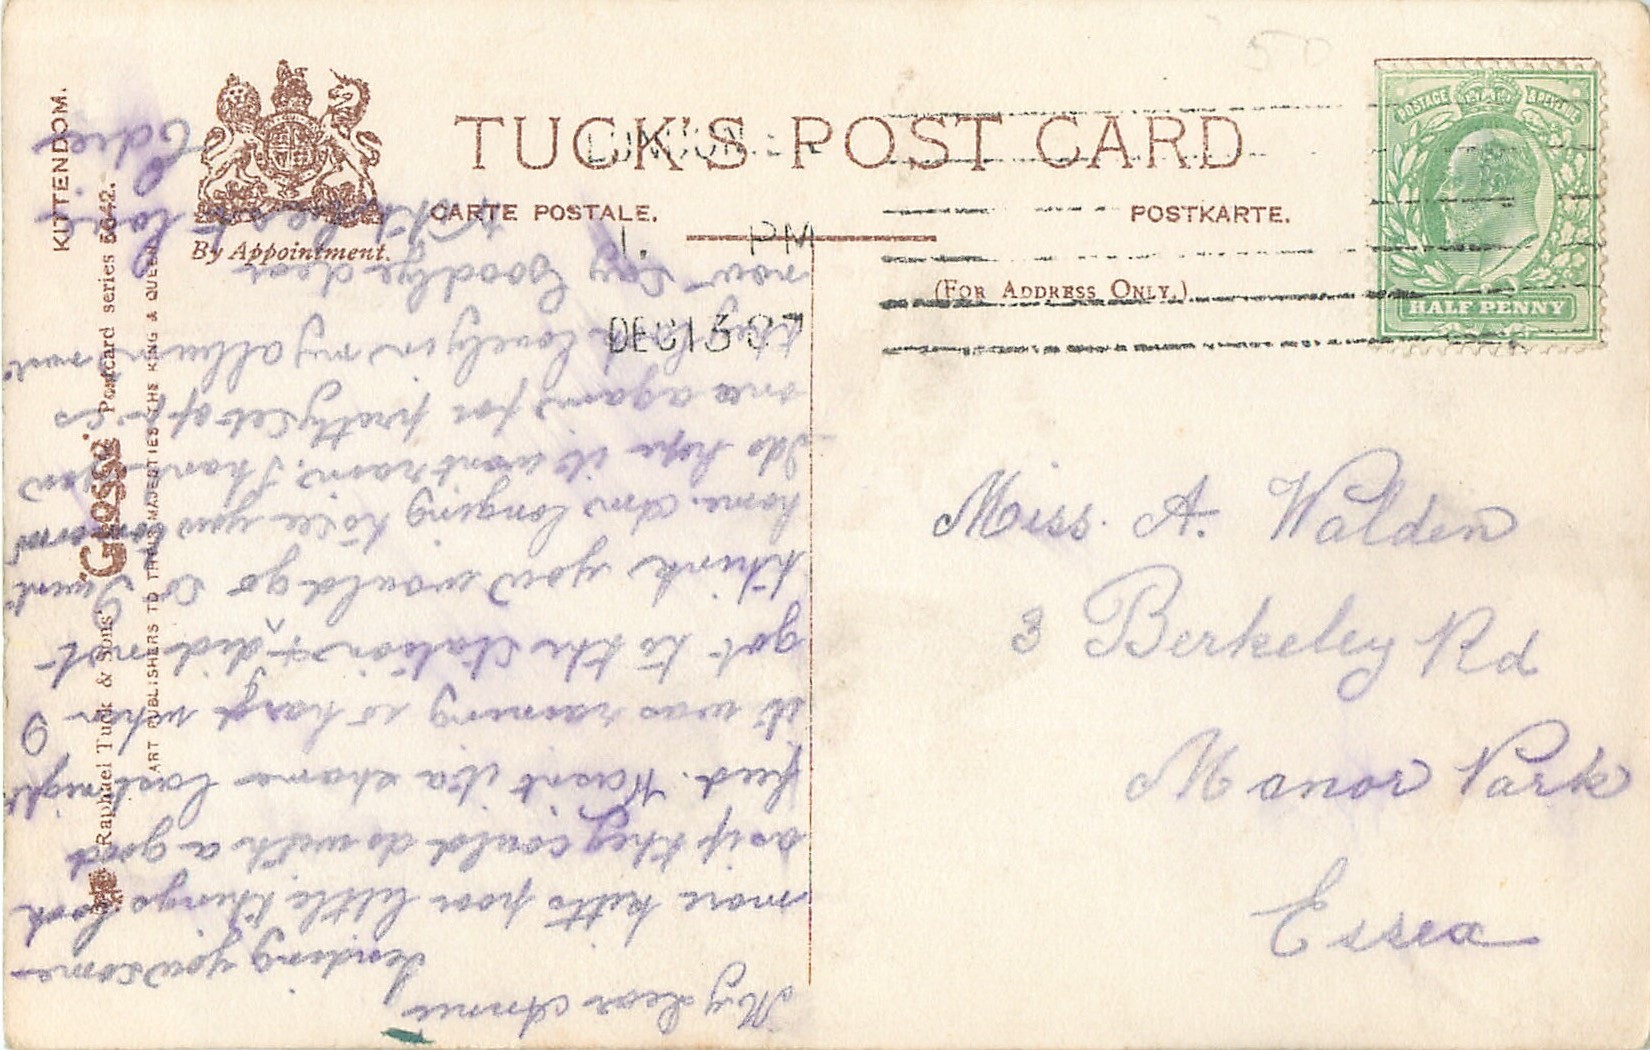 KITTENDOM.
Raphael Tuck & Sons' "GLOSSO" Postcard series 5642.
ART PUBLISHERS TO THEIR MAJESTIES THE KING & QUEEN
By Appointment.
TUCK'S POST CARD
CARTE POSTALE.
POSTKARTE.
(FOR ADDRESS ONLY.)
LONDON
1. PM
DEC 13 07
POSTAGE & REVENUE
HALF PENNY
50
Miss. A. Walden
3 Berkeley Rd
Manor Park
Essex
My dear Annie,
Sending you some
more kitts poor little things look
as if they could do with a good
feed. Wasnt it a shame last night
it was raining so hard when I
got to the station & did not
think you would go so I went
home. Am longing to see you tomorrow
do hope it wont rain. Thank you
once again for pretty set of p-cs
they look lovely in my album
now say Goodbye dear
With best love
Edie